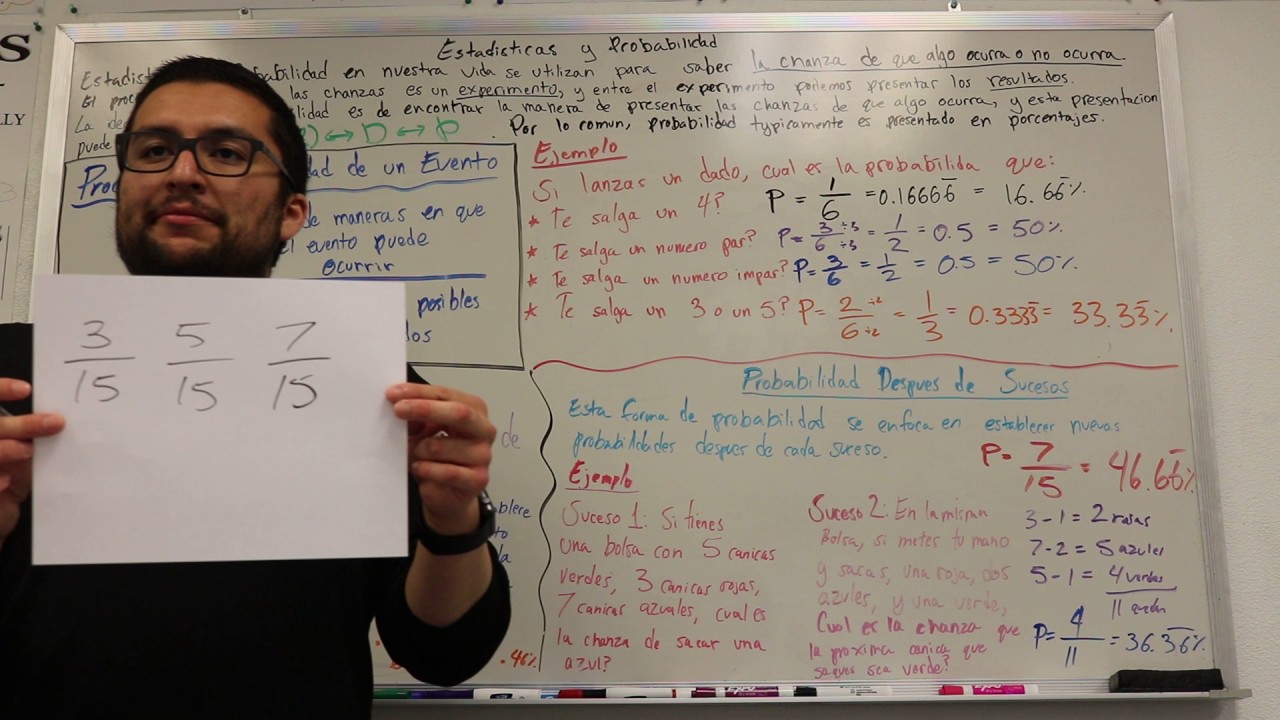 S
LLY
Estadisticas y Probabilidad
Estadist babilidad en nuestra vida se utilizan para saber la chanza de que algo ocurra o no ocurra.
El proc las chanzas es un experimento, y entre el experimento podemos presentar los resultados.
La ide lidad es de encontrar la manera de presentar las chanzas de que algo ocurra, y esta presentacion
puede ↔ D ↔ P. Por lo comun, probabilidad typicamente es presentado en porcentajes.
Pro dad de un Evento
de maneras en que
el evento puede
ocurrir
posibles
dos
3/15 5/15 7/15
de
blece
to
la
.46%
Ejemplo
Si lanzas un dado, cual es la probabilida que:
* Te salga un 4? P = 1/6 = 0.16666̅ = 16.66̅%
* Te salga un numero par? P = 3÷3/6÷3 = 1/2 = 0.5 = 50%
* Te salga un numero impar? P = 3/6 = 1/2 = 0.5 = 50%.
* Te salga un 3 o un 5? P = 2÷2/6÷2 = 1/3 = 0.3333̅ = 33.33̅%
Probabilidad Despues de Sucesos
Esta forma de probabilidad se enfoca en establecer nuevas
probabilidades despues de cada suceso.
Ejemplo
Suceso 1: Si tienes
una bolsa con 5 canicas
verdes, 3 canicas rojas,
7 canicas azuales, cual es
la chanza de sacar una
azul?
P = 7/15 = 46.66̅%
Suceso 2: En la misma
Bolsa, si metes tu mano
y sacas, una roja, dos
azules, y una verde,
Cual es la chanza que
la proxima canica que
saques sea verde?
3 - 1 = 2 rojas
7 - 2 = 5 azules
5 - 1 = 4 verdes
11 quedan
P = 4/11 = 36.36̅%